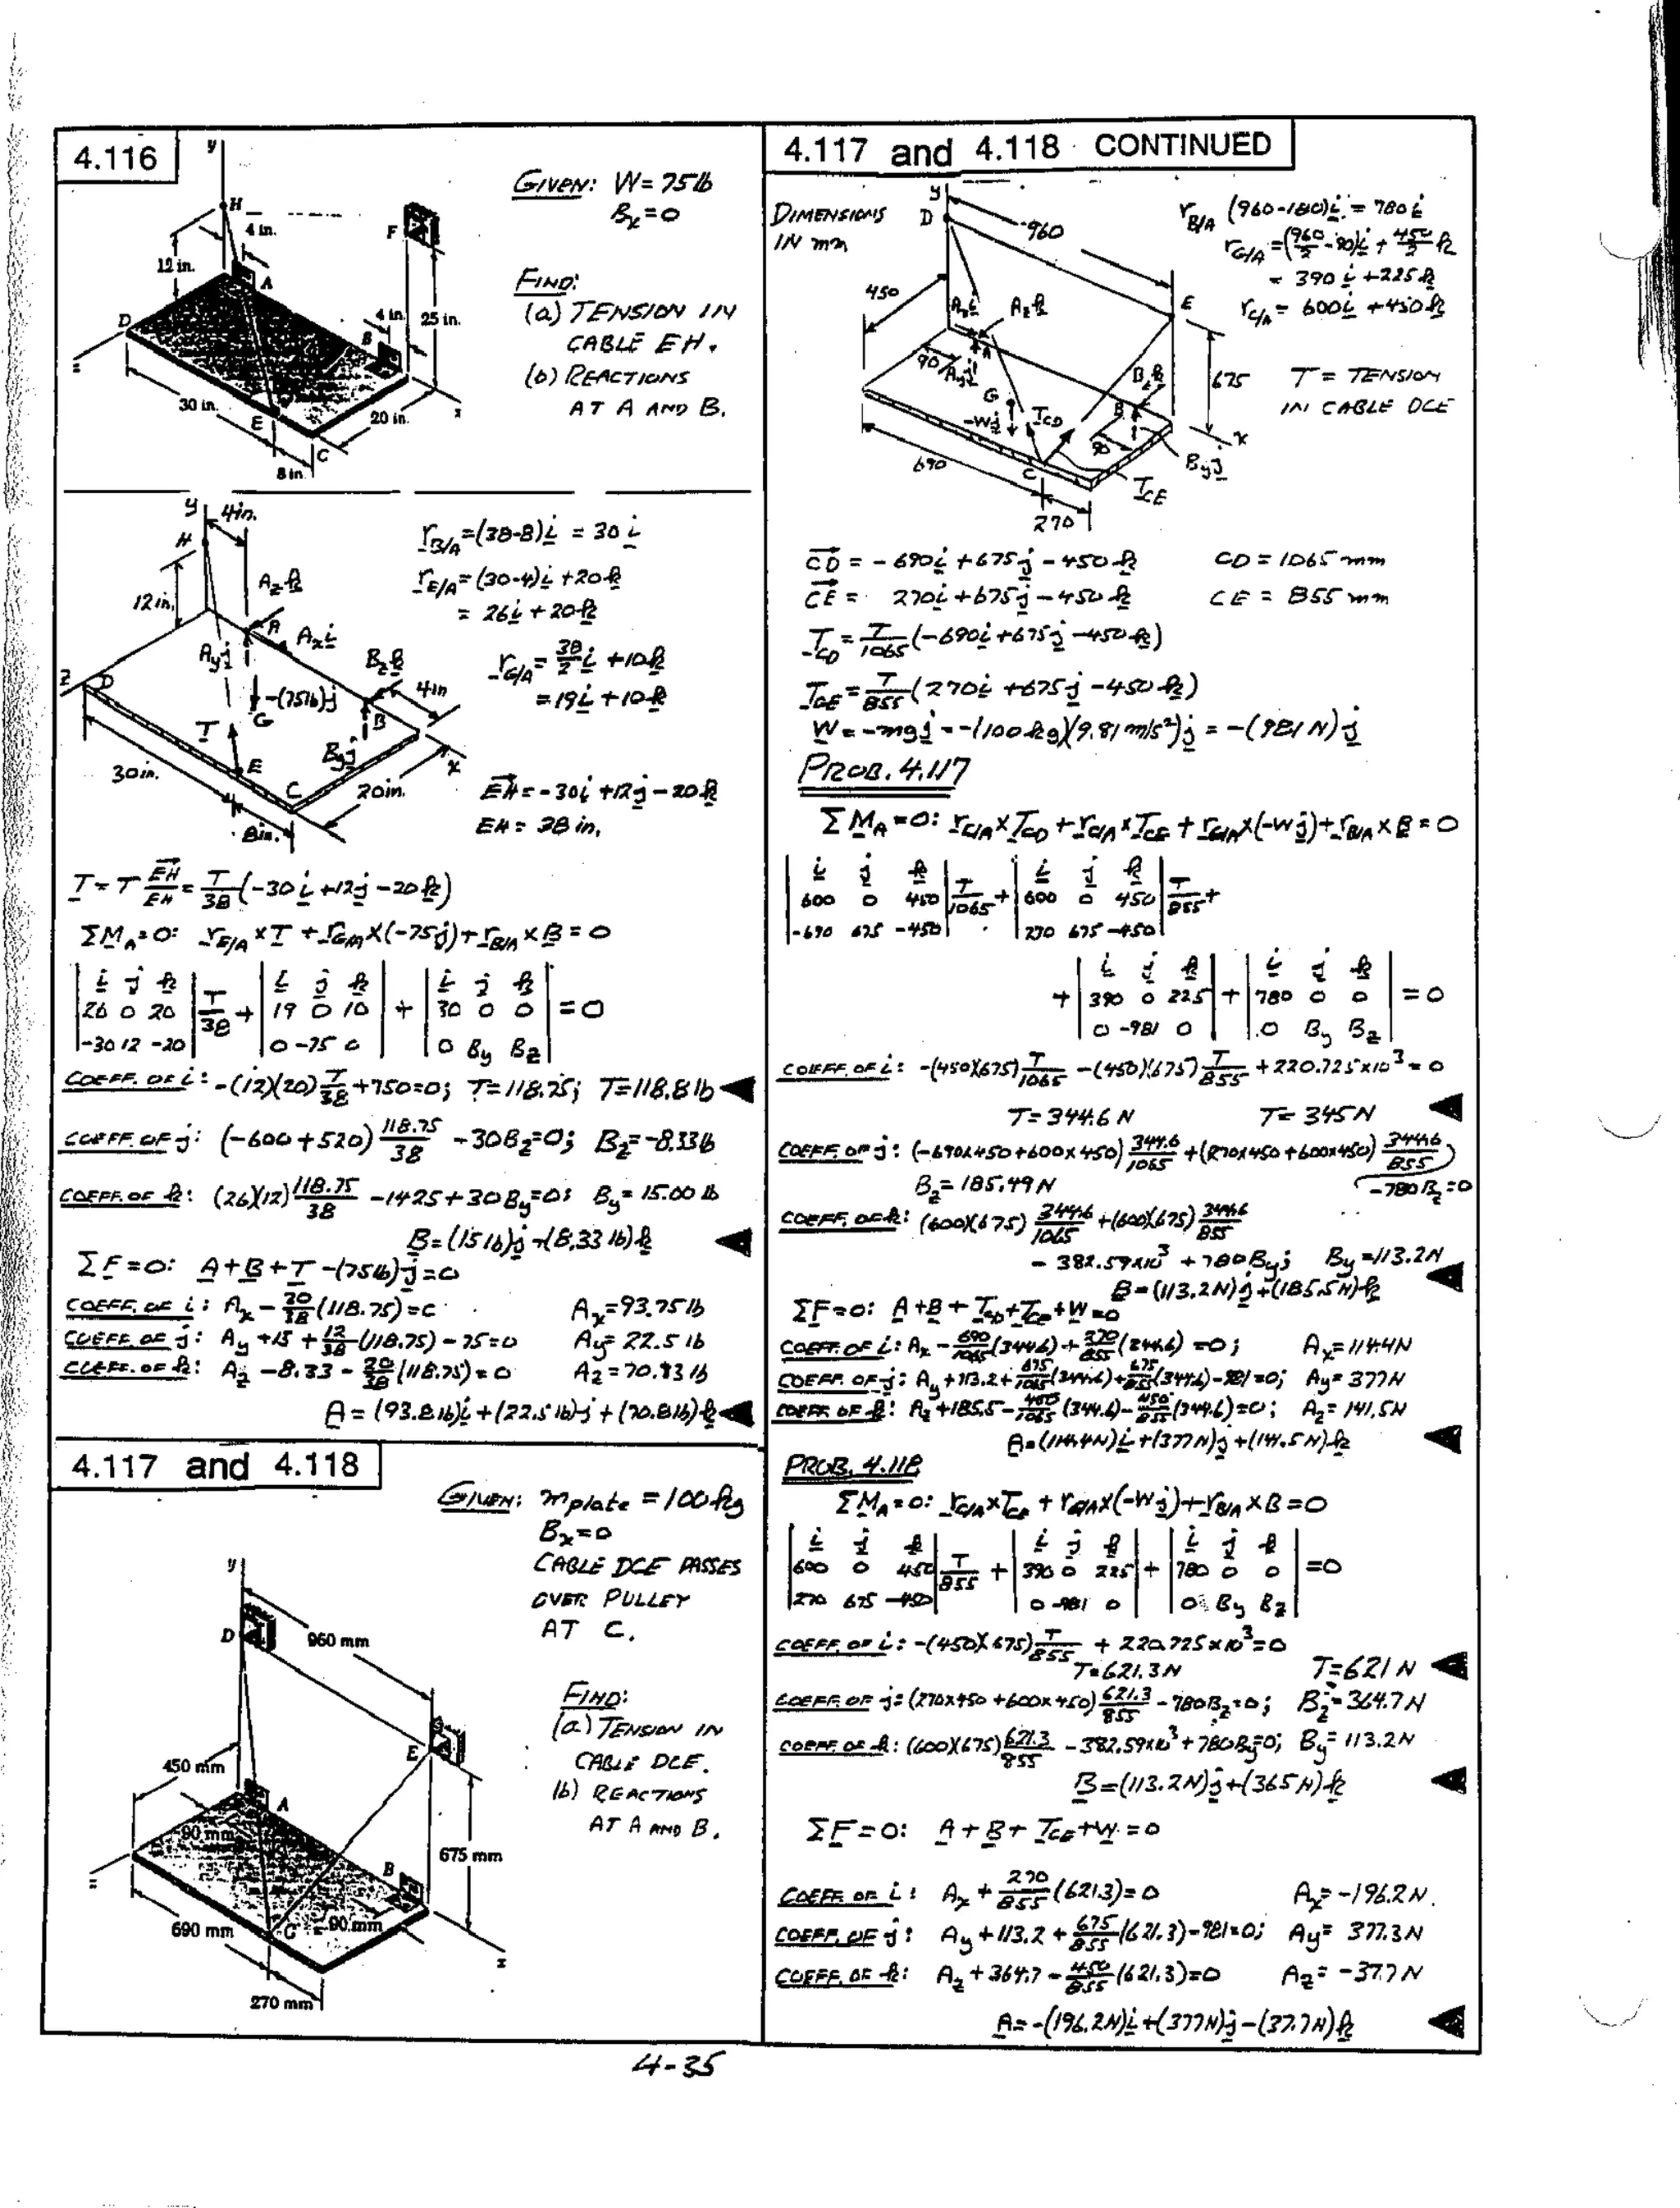 4.116
y
H
4 in.
F
12 in.
A
D
4 in.
25 in.
B
z
30 in.
E
20 in.
x
C
8 in.
GIVEN: W = 75 lb
Bx = 0
FIND:
(a) TENSION IN
CABLE EH.
(b) REACTIONS
AT A AND B.
y
4in.
H
12in.
Az k
A
Ax i
Ay j
Bz k
4in
Z
D
-(75lb)j
G
B
T
By j
E
x
30in.
C
20in.
8in.
r B/A = (38-8)i = 30 i
r E/A = (30-4)i + 20 k
= 26 i + 20 k
r G/A = 38/2 i + 10 k
= 19 i + 10 k
EH = -30 i + 12 j - 20 k
EH = 38 in.
T = T EH/EH = T/38 (-30 i + 12 j - 20 k)
ΣM A = 0: r E/A × T + r G/A × (-75 j) + r B/A × B = 0
| i j k | | i j k | | i j k |
| 26 0 20 | T/38 + | 19 0 10 | + | 30 0 0 | = 0
| -30 12 -20 | | 0 -75 0 | | 0 By Bz |
COEFF. OF i: -(12)(20) T/38 + 750 = 0; T = 118.75; T = 118.8 lb ◀
COEFF. OF j: (-600 + 520) 118.75/38 - 30 Bz = 0; Bz = -8.33 lb
COEFF. OF k: (26)(12) 118.75/38 - 1425 + 30 By = 0; By = 15.00 lb
B = (15 lb)j - (8.33 lb)k ◀
ΣF = 0: A + B + T - (75 lb) j = 0
COEFF. OF i: Ax - 30/38 (118.75) = 0 Ax = 93.75 lb
COEFF. OF j: Ay + 15 + 12/38 (118.75) - 75 = 0 Ay = 22.5 lb
COEFF. OF k: Az - 8.33 - 20/38 (118.75) = 0 Az = 70.83 lb
A = (93.8 lb)i + (22.5 lb)j + (70.8 lb)k ◀
4.117 and 4.118
GIVEN: m plate = 100 kg
Bx = 0
CABLE DCE PASSES
OVER PULLEY
AT C.
FIND:
(a) TENSION IN
CABLE DCE.
(b) REACTIONS
AT A AND B.
y
D
960 mm
E
450 mm
A
90 mm
675 mm
B
z
690 mm
C
90 mm
x
270 mm
4.117 and 4.118 CONTINUED
DIMENSIONS
IN mm
y
D
960
450
Ax i
Az k
E
A
90
Ay j
G
Bz k
675
-W j
T CD
B
x
90
690
C
By j
T CE
270
r B/A (960-180)i = 780 i
r G/A = (960/2 - 90)i + 450/2 k
= 390 i + 225 k
r C/A = 600 i + 450 k
T = TENSION
IN CABLE DCE
CD = -690 i + 675 j - 450 k CD = 1065 mm
CE = 270 i + 675 j - 450 k CE = 855 mm
T CD = T/1065 (-690 i + 675 j - 450 k)
T CE = T/855 (270 i + 675 j - 450 k)
W = -mg j = -(100 kg)(9.81 m/s²) j = -(981 N) j
PROB. 4.117
ΣM A = 0: r C/A × T CD + r C/A × T CE + r G/A × (-W j) + r B/A × B = 0
| i j k | | i j k |
| 600 0 450 | T/1065 + | 600 0 450 | T/855 +
| -690 675 -450 | | 270 675 -450 |
| i j k | | i j k |
+ | 390 0 225 | + | 780 0 0 | = 0
| 0 -981 0 | | 0 By Bz |
COEFF. OF i: -(450)(675) T/1065 - (450)(675) T/855 + 220.725×10³ = 0
T = 344.6 N T = 345 N ◀
COEFF. OF j: (-690×450 + 600×450) 344.6/1065 + (270×450 + 600×450) 344.6/855
Bz = 185.49 N - 780 Bz = 0
COEFF. OF k: (600)(675) 344.6/1065 + (600)(675) 344.6/855
- 382.59×10³ + 780 By; By = 113.2 N
B = (113.2 N)j + (185.5 N)k ◀
ΣF = 0: A + B + T CD + T CE + W = 0
COEFF. OF i: Ax - 690/1065 (344.6) + 270/855 (344.6) = 0; Ax = 114.4 N
COEFF. OF j: Ay + 113.2 + 675/1065 (344.6) + 675/855 (344.6) - 981 = 0; Ay = 377 N
COEFF. OF k: Az + 185.5 - 450/1065 (344.6) - 450/855 (344.6) = 0; Az = 141.5 N
A = (114.4 N)i + (377 N)j + (141.5 N)k ◀
PROB. 4.118
ΣM A = 0: r C/A × T CE + r G/A × (-W j) + r B/A × B = 0
| i j k | | i j k | | i j k |
| 600 0 450 | T/855 + | 390 0 225 | + | 780 0 0 | = 0
| 270 675 -450 | | 0 -981 0 | | 0 By Bz |
COEFF. OF i: -(450)(675) T/855 + 220.725×10³ = 0
T = 621.3 N T = 621 N ◀
COEFF. OF j: (270×450 + 600×450) 621.3/855 - 780 Bz = 0; Bz = 364.7 N
COEFF. OF k: (600)(675) 621.3/855 - 382.59×10³ + 780 By = 0; By = 113.2 N
B = (113.2 N)j + (365 N)k ◀
ΣF = 0: A + B + T CE + W = 0
COEFF. OF i: Ax + 270/855 (621.3) = 0 Ax = -196.2 N.
COEFF. OF j: Ay + 113.2 + 675/855 (621.3) - 981 = 0; Ay = 377.3 N
COEFF. OF k: Az + 364.7 - 450/855 (621.3) = 0 Az = -37.7 N
A = -(196.2 N)i + (377 N)j - (37.7 N)k ◀
4-35